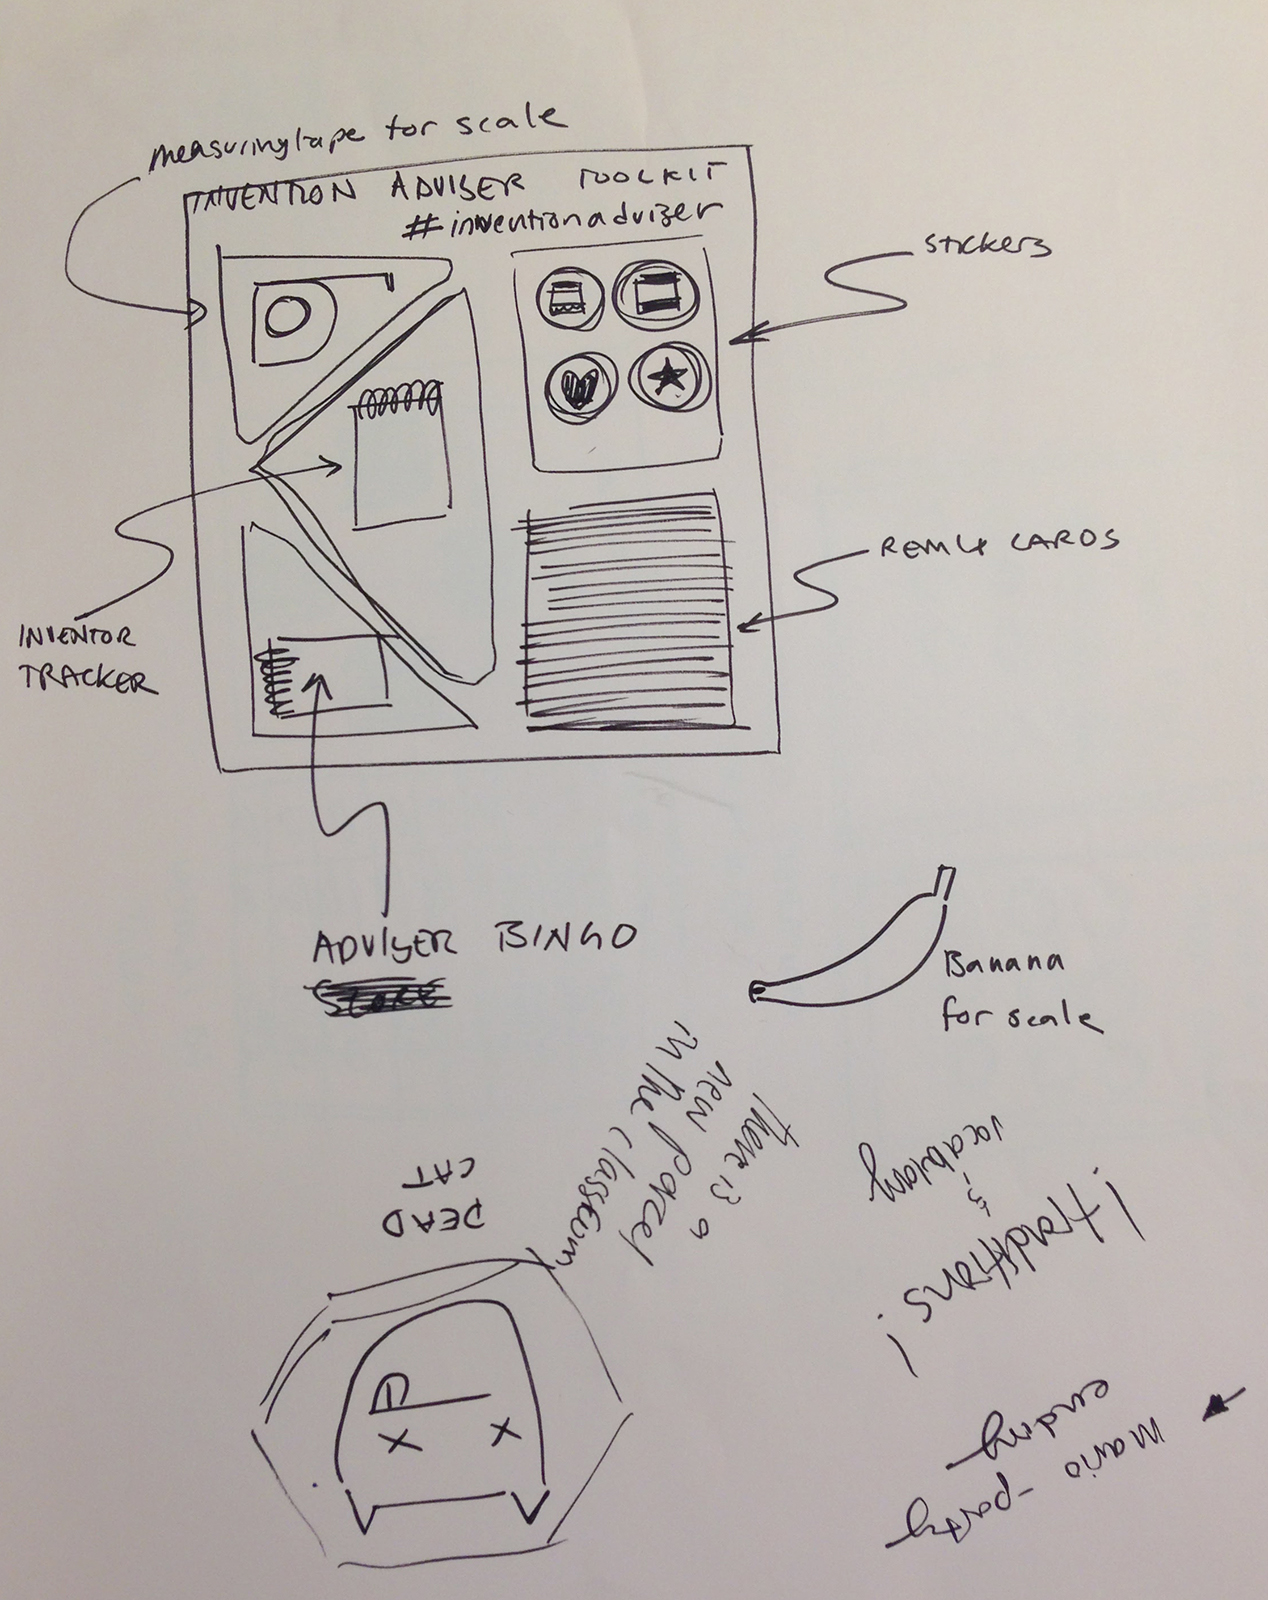 measuring tape for scale
INVENTION ADVISER TOOLKIT
#inventionadvizer
stickers
INVENTOR
TRACKER
ADVISER BINGO
Banana
for scale
there is a
new
in the
DEAD
CAT
vocabulary
&
Mario-party
ending